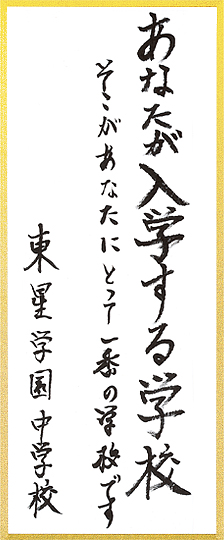 あなたが入学する学校
そこがあなたにとって一番の学校です
東星学園中学校